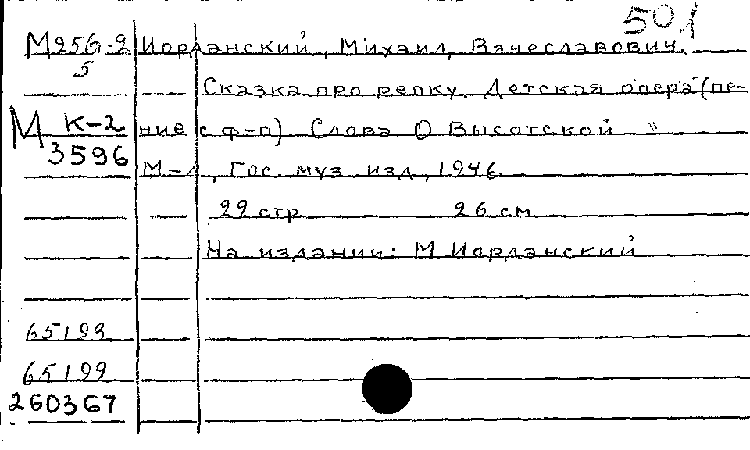 501
М256-2 Иорданский, Михаил Вячеславович.
5
Сказка про репку. Детская опера (пе-
М К-2 ние с ф-п) Слова О Высотской
3596
М-Л, Гос. муз. изд, 1946
22 стр 26 см
На издании: М Иорданский
65199
65199
260367